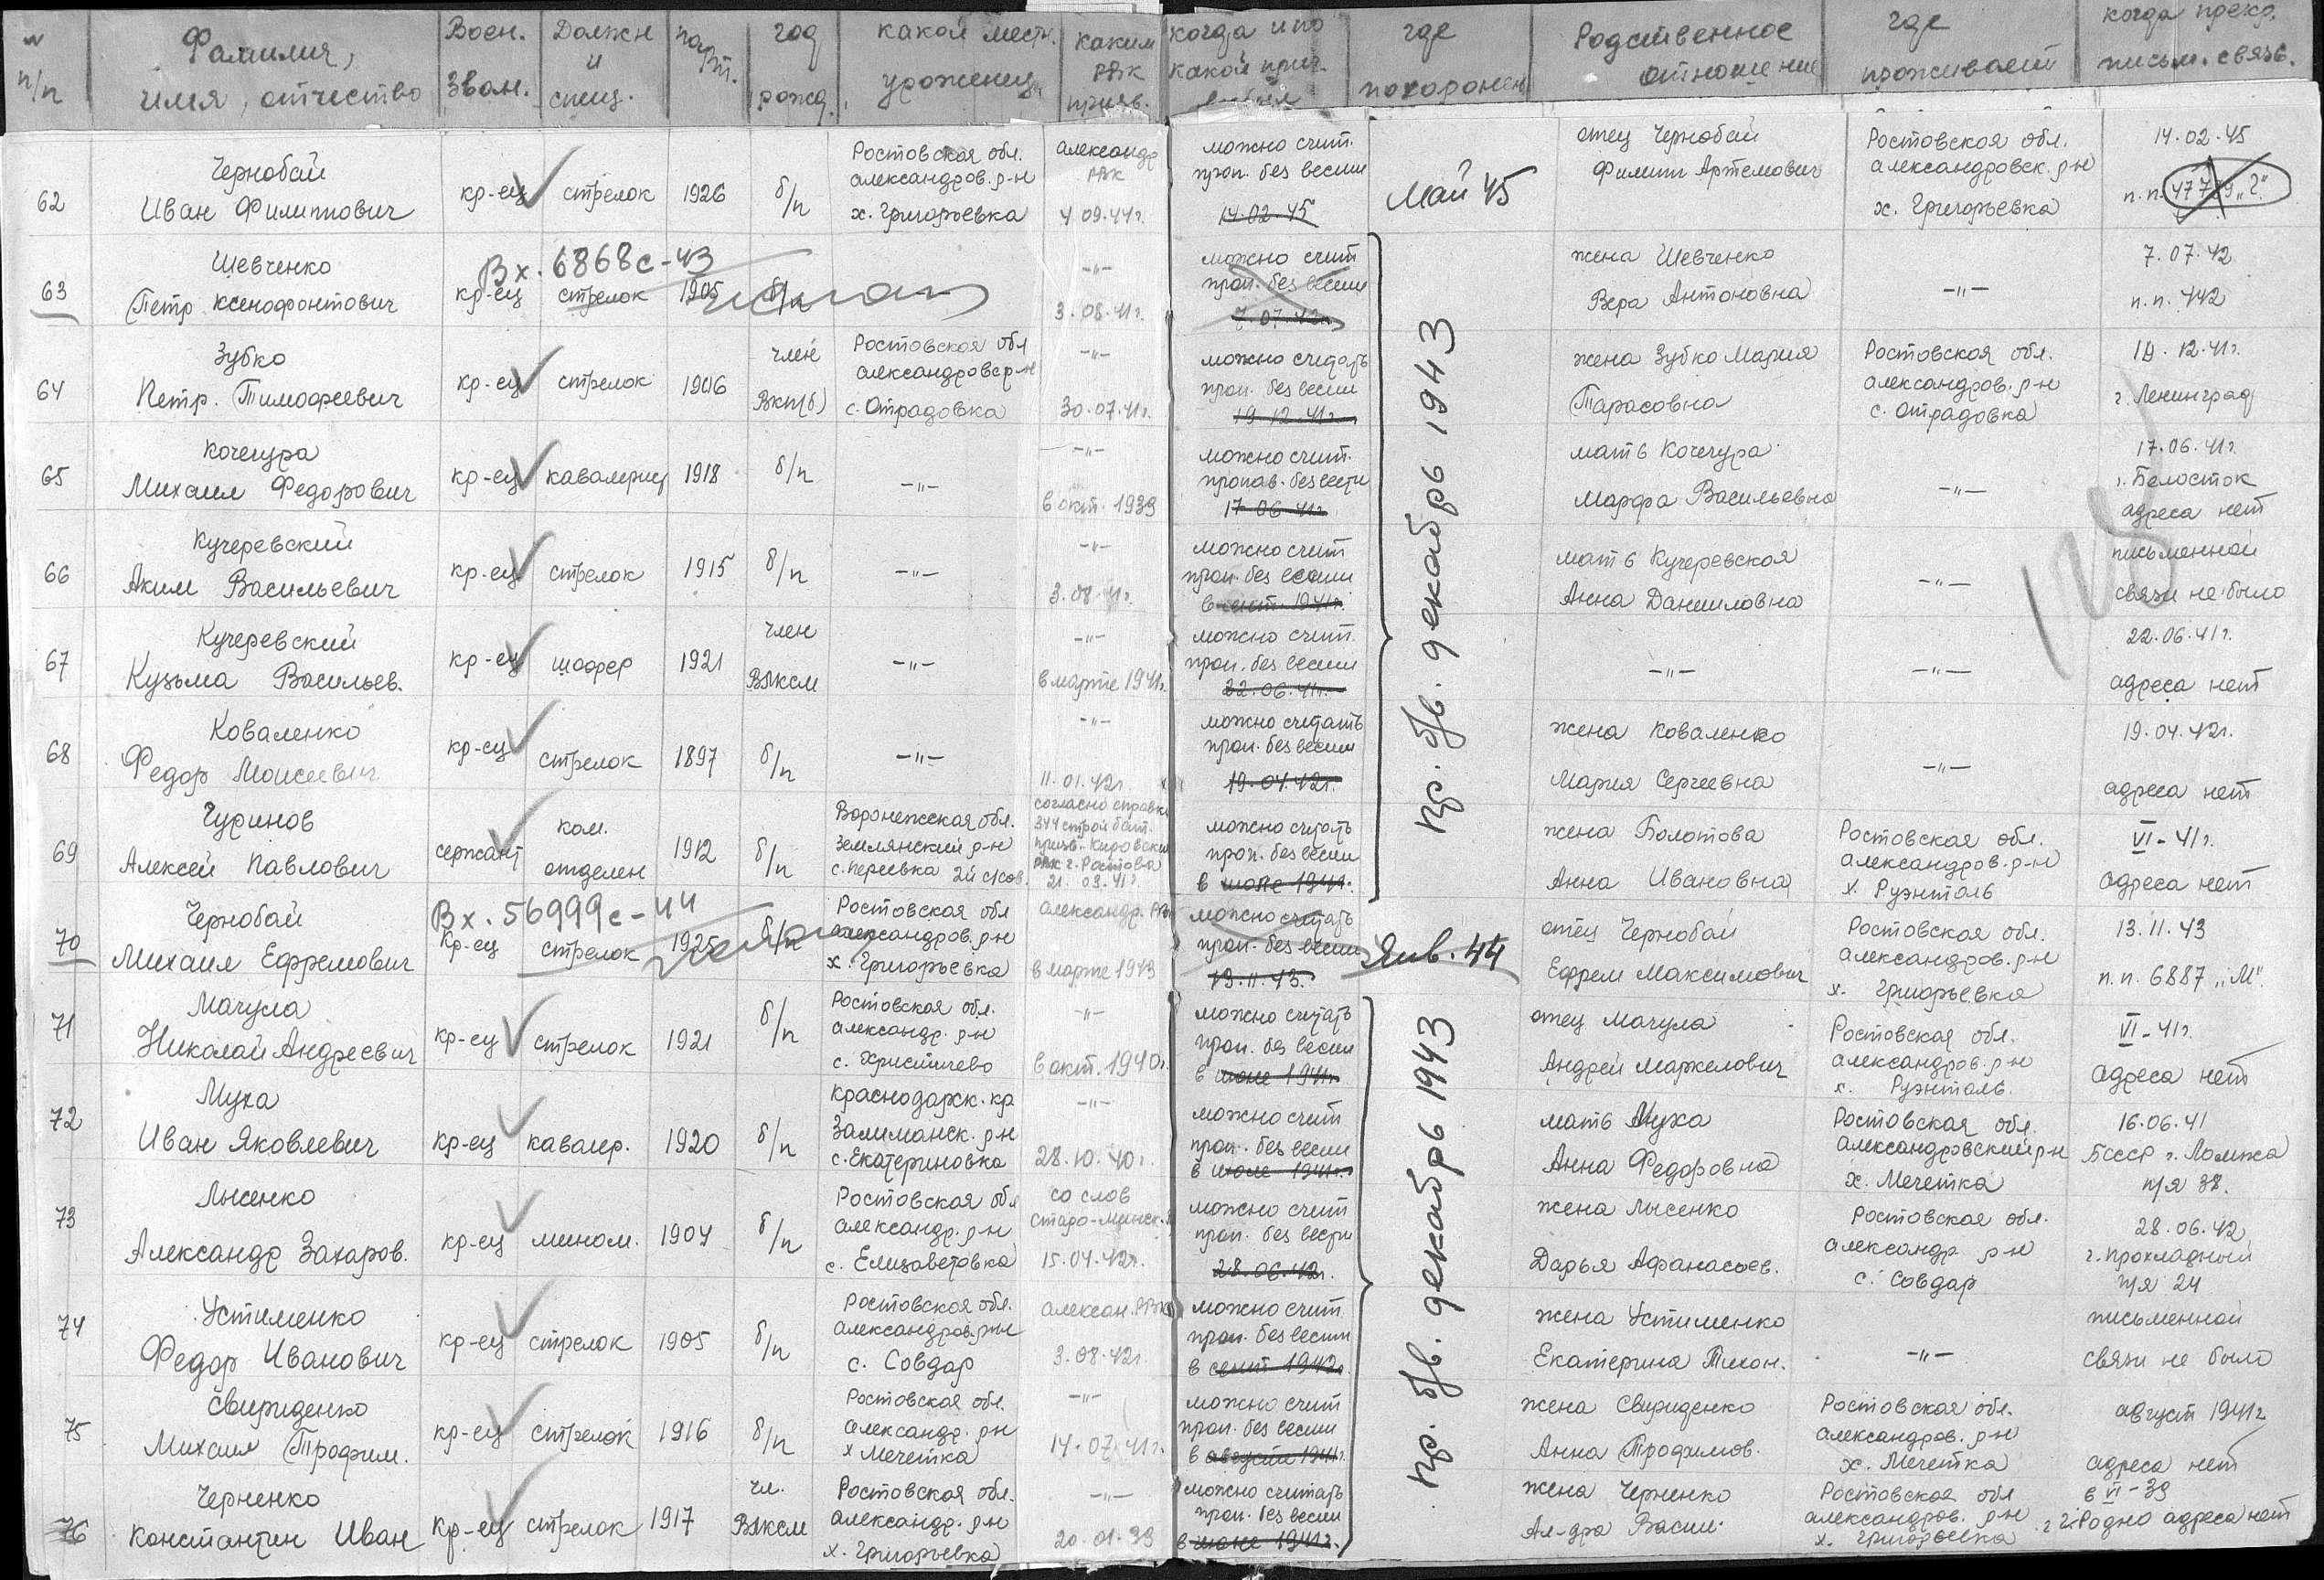 № п/п
Фамилия, имя, отчество
Воен. зван.
Должн и спец.
парт.
год рожд.
какой местн. уроженец
каким РВК призв.
когда и по какой прич. выбыл
где похоронен
Родственное отношение
где проживает
когда прекр. письм. связь.
62
Чернобай
Иван Филиппович
кр-ец
стрелок
1926
б/п
Ростовская обл.
александров. р-н
х. Григорьевка
александр
РВК
4 09.44г.
можно счит.
проп. без вести
14.02.45
Май 45
отец Чернобай
Филипп Артемович
Ростовская обл.
александровск. р-н
х. Григорьевка
14.02.45
п.п.
63
Шевченко
Петр Ксенофонтович
Вх. 6868с-43
кр-ец
стрелок
1905
б/п
-"-
3.08.41г.
можно счит
проп. без вести
7.07.42г.
жена Шевченко
Вера Антоновна
-"-
7.07.42
п.п. 442
64
Зубко
Петр. Тимофеевич
кр-ец
стрелок
1906
член
ВКП(б)
Ростовская обл
александровс р-н
с. Отрадовка
-"-
30.07.41г.
можно считать
проп. без вести
19.12.41г.
пр. б/в. декабрь 1943
жена Зубко Мария
Тарасовна
Ростовская обл.
александров. р-н
с. Отрадовка
19.12.41г.
г. Ленинград
65
Кочегура
Михаил Федорович
кр-ец
кавалерис
1918
б/п
-"-
-"-
в окт. 1939
можно счит.
пропав. без вести
17.06.41г.
мать Кочегура
Марфа Васильевна
-"-
17.06.41г.
г. Белосток
адреса нет
66
Кучеревский
Аким Васильевич
кр-ец
стрелок
1915
б/п
-"-
-"-
3.08.41г.
можно счит
проп. без вести
в сент. 1941г.
мать Кучеревская
Анна Даниловна
-"-
письменной
связи не было
67
Кучеревский
Кузьма Васильев.
кр-ец
шофер
1921
член
ВЛКСМ
-"-
-"-
в марте 1941г.
можно счит.
проп. без вести
22.06.41г.
-"-
-"-
22.06.41г.
адреса нет
68
Коваленко
Федор Моисеевич
кр-ец
стрелок
1897
б/п
-"-
-"-
11.01.42г.
можно считать
проп. без вести
19.04.42г.
жена Коваленко
Мария Сергеевна
-"-
19.04.42г.
адреса нет
69
Чуринов
Алексей Павлович
сержант
ком.
отделен
1912
б/п
Воронежская обл.
Землянский р-н
с. Переевка 2й с/сов.
согласно справки
344 строй бат.
призв. Кировским
РВК г. Ростова
21.03.41г.
можно считать
проп. без вести
в июле 1941г.
жена Болотова
Анна Ивановна
Ростовская обл.
александров. р-н
х. Руэнталь
VI-41г.
адреса нет
70
Чернобай
Михаил Ефремович
Вх. 56999с-44
кр-ец
стрелок
1925
б/п
Ростовская обл
александров. р-н
х. Григорьевка
александр. РВК
в марте 1943
можно считать
проп. без вести
13.11.43.
Янв. 44
отец Чернобай
Ефрем Максимович
Ростовская обл.
александров. р-н
х. Григорьевка
13.11.43
п.п. 6887 „М"
71
Мачула
Николай Андреевич
кр-ец
стрелок
1921
б/п
Ростовская обл.
александр. р-н
с. Христичево
-"-
в окт. 1940г.
можно считать
проп. без вести
в июне 1941г.
отец Мачула
Андрей Маркелович
Ростовская обл.
александров. р-н
х. Руэнталь.
VI-41г.
адреса нет
72
Муха
Иван Яковлевич
кр-ец
кавалер.
1920
б/п
Краснодарск. кр
Залиманск. р-н
с. Екатериновка
-"-
28.10.40г.
можно счит
проп. без вести
в июле 1941г.
мать Муха
Анна Федоровна
Ростовская обл.
александровский р-н
х. Мечетка
16.06.41
БССР г. Ломжа
п/я 38.
73
Лысенко
Александр Захаров.
кр-ец
мином.
1904
б/п
Ростовская обл
александр. р-н
с. Елизаветовка
со слов
Старо-Минск.
15.04.42г.
можно счит
проп. без вести
28.06.42г.
пр. б/в. декабрь 1943
жена Лысенко
Дарья Афанасьев.
Ростовская обл.
александр р-н
с. Совдар
28.06.42
г. Прохладный
п/я 24
74
Устименко
Федор Иванович
кр-ец
стрелок
1905
б/п
Ростовская обл.
александров. р-н
с. Совдар
алексан. РВК
3.08.42г.
можно счит
проп. без вести
в сент. 1942г.
жена Устименко
Екатерина Тихон.
-"-
письменной
связи не было
75
Свириденко
Михаил Трофим.
кр-ец
стрелок
1916
б/п
Ростовская обл.
александр. р-н
х Мечетка
-"-
14.07.41г.
можно счит
проп. без вести
в августе 1941г.
жена Свириденко
Анна Трофимов.
Ростовская обл.
александров. р-н
х. Мечетка
август 1941г
адреса нет
76
Черненко
Константин Иван
кр-ец
стрелок
1917
чл.
ВЛКСМ
Ростовская обл.
александр. р-н
х. Григорьевка
-"-
20.01.39
можно считать
проп. без вести
в июне 1941г.
жена Черненко
Ал-дра Васил.
Ростовская обл
александров. р-н
х. Григорьевка
в VI-39
г. Гродно адреса нет